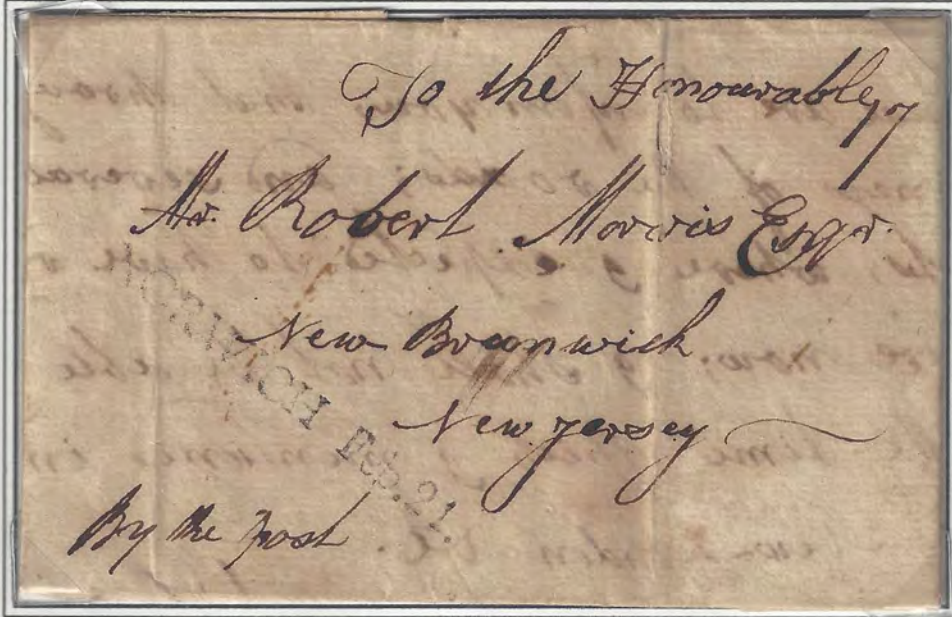 To the Honourable
Mr. Robert Morris Esqr.
New Bronnwick
New Jersey
NORWICH Feb. 21.
By the post